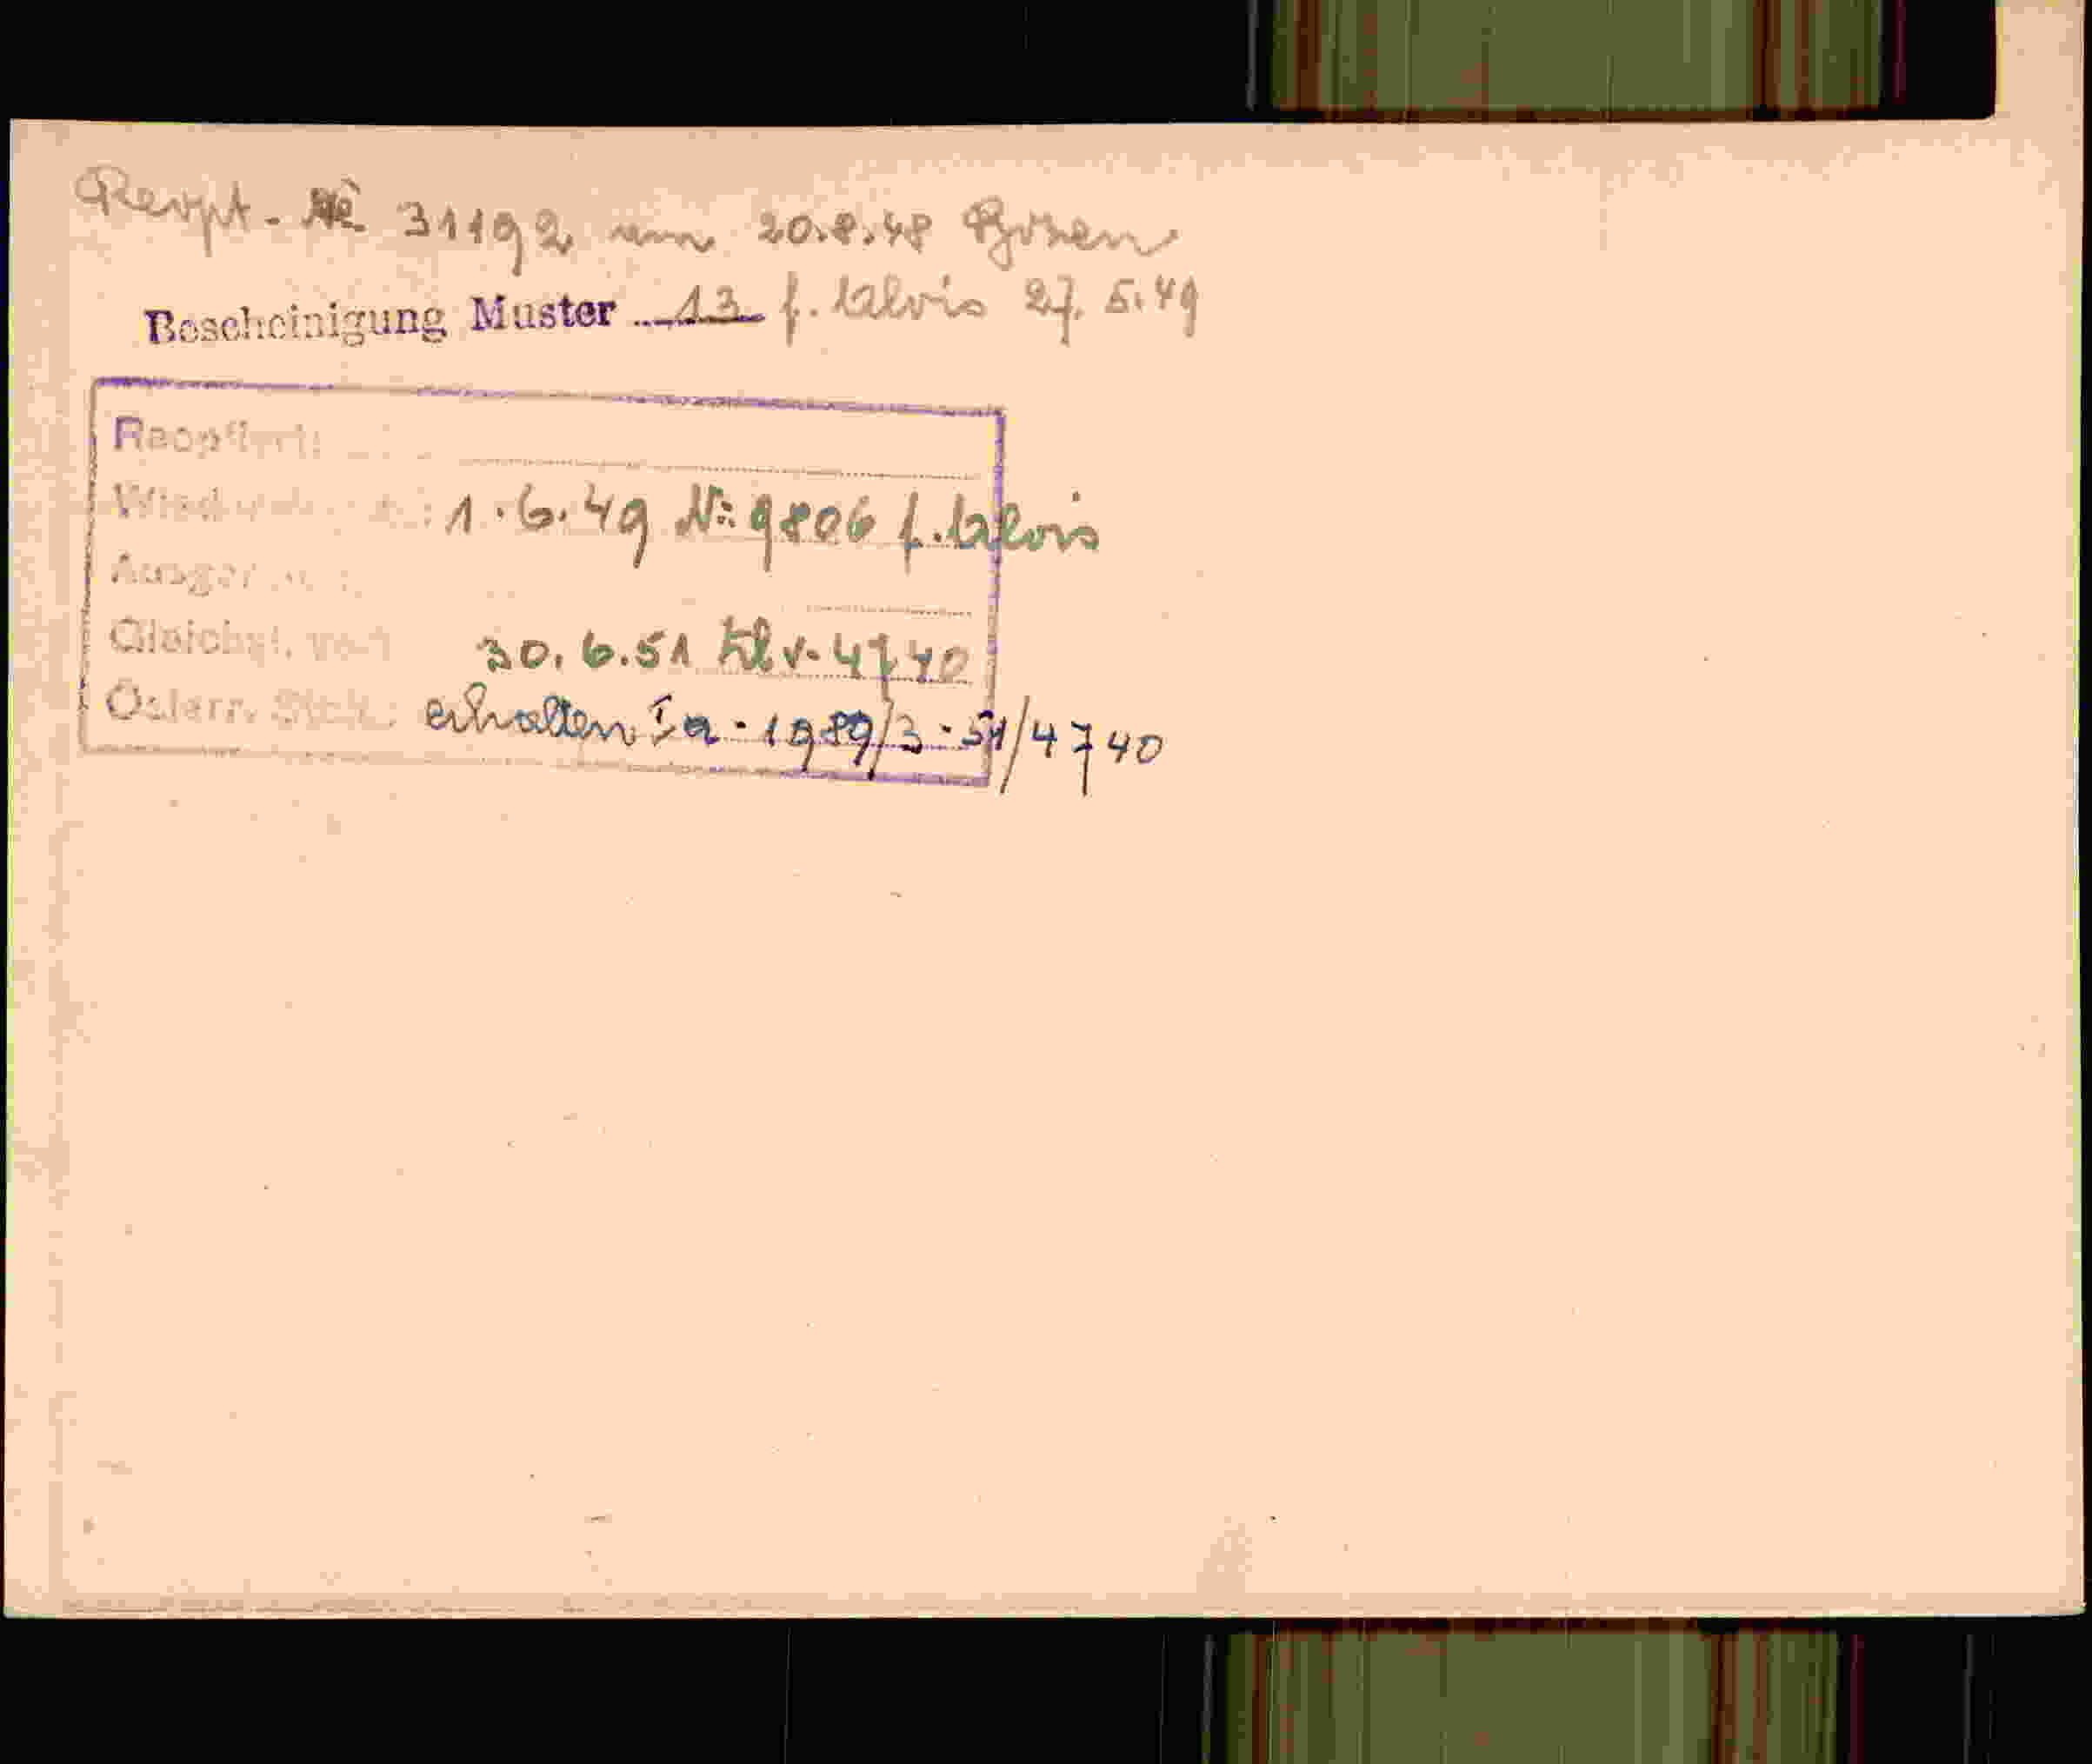 Reopt. No 31192 am 20.8.48 Bozen
Bescheinigung Muster 13 f. Alois 27.5.49
Reoptiert:
1.6.49 No 9806 f. Alois
Gleichst. von
30.6.51 Zl v. 4740
Österr. Stb.: erhalten Ia-1989/3-51/4740